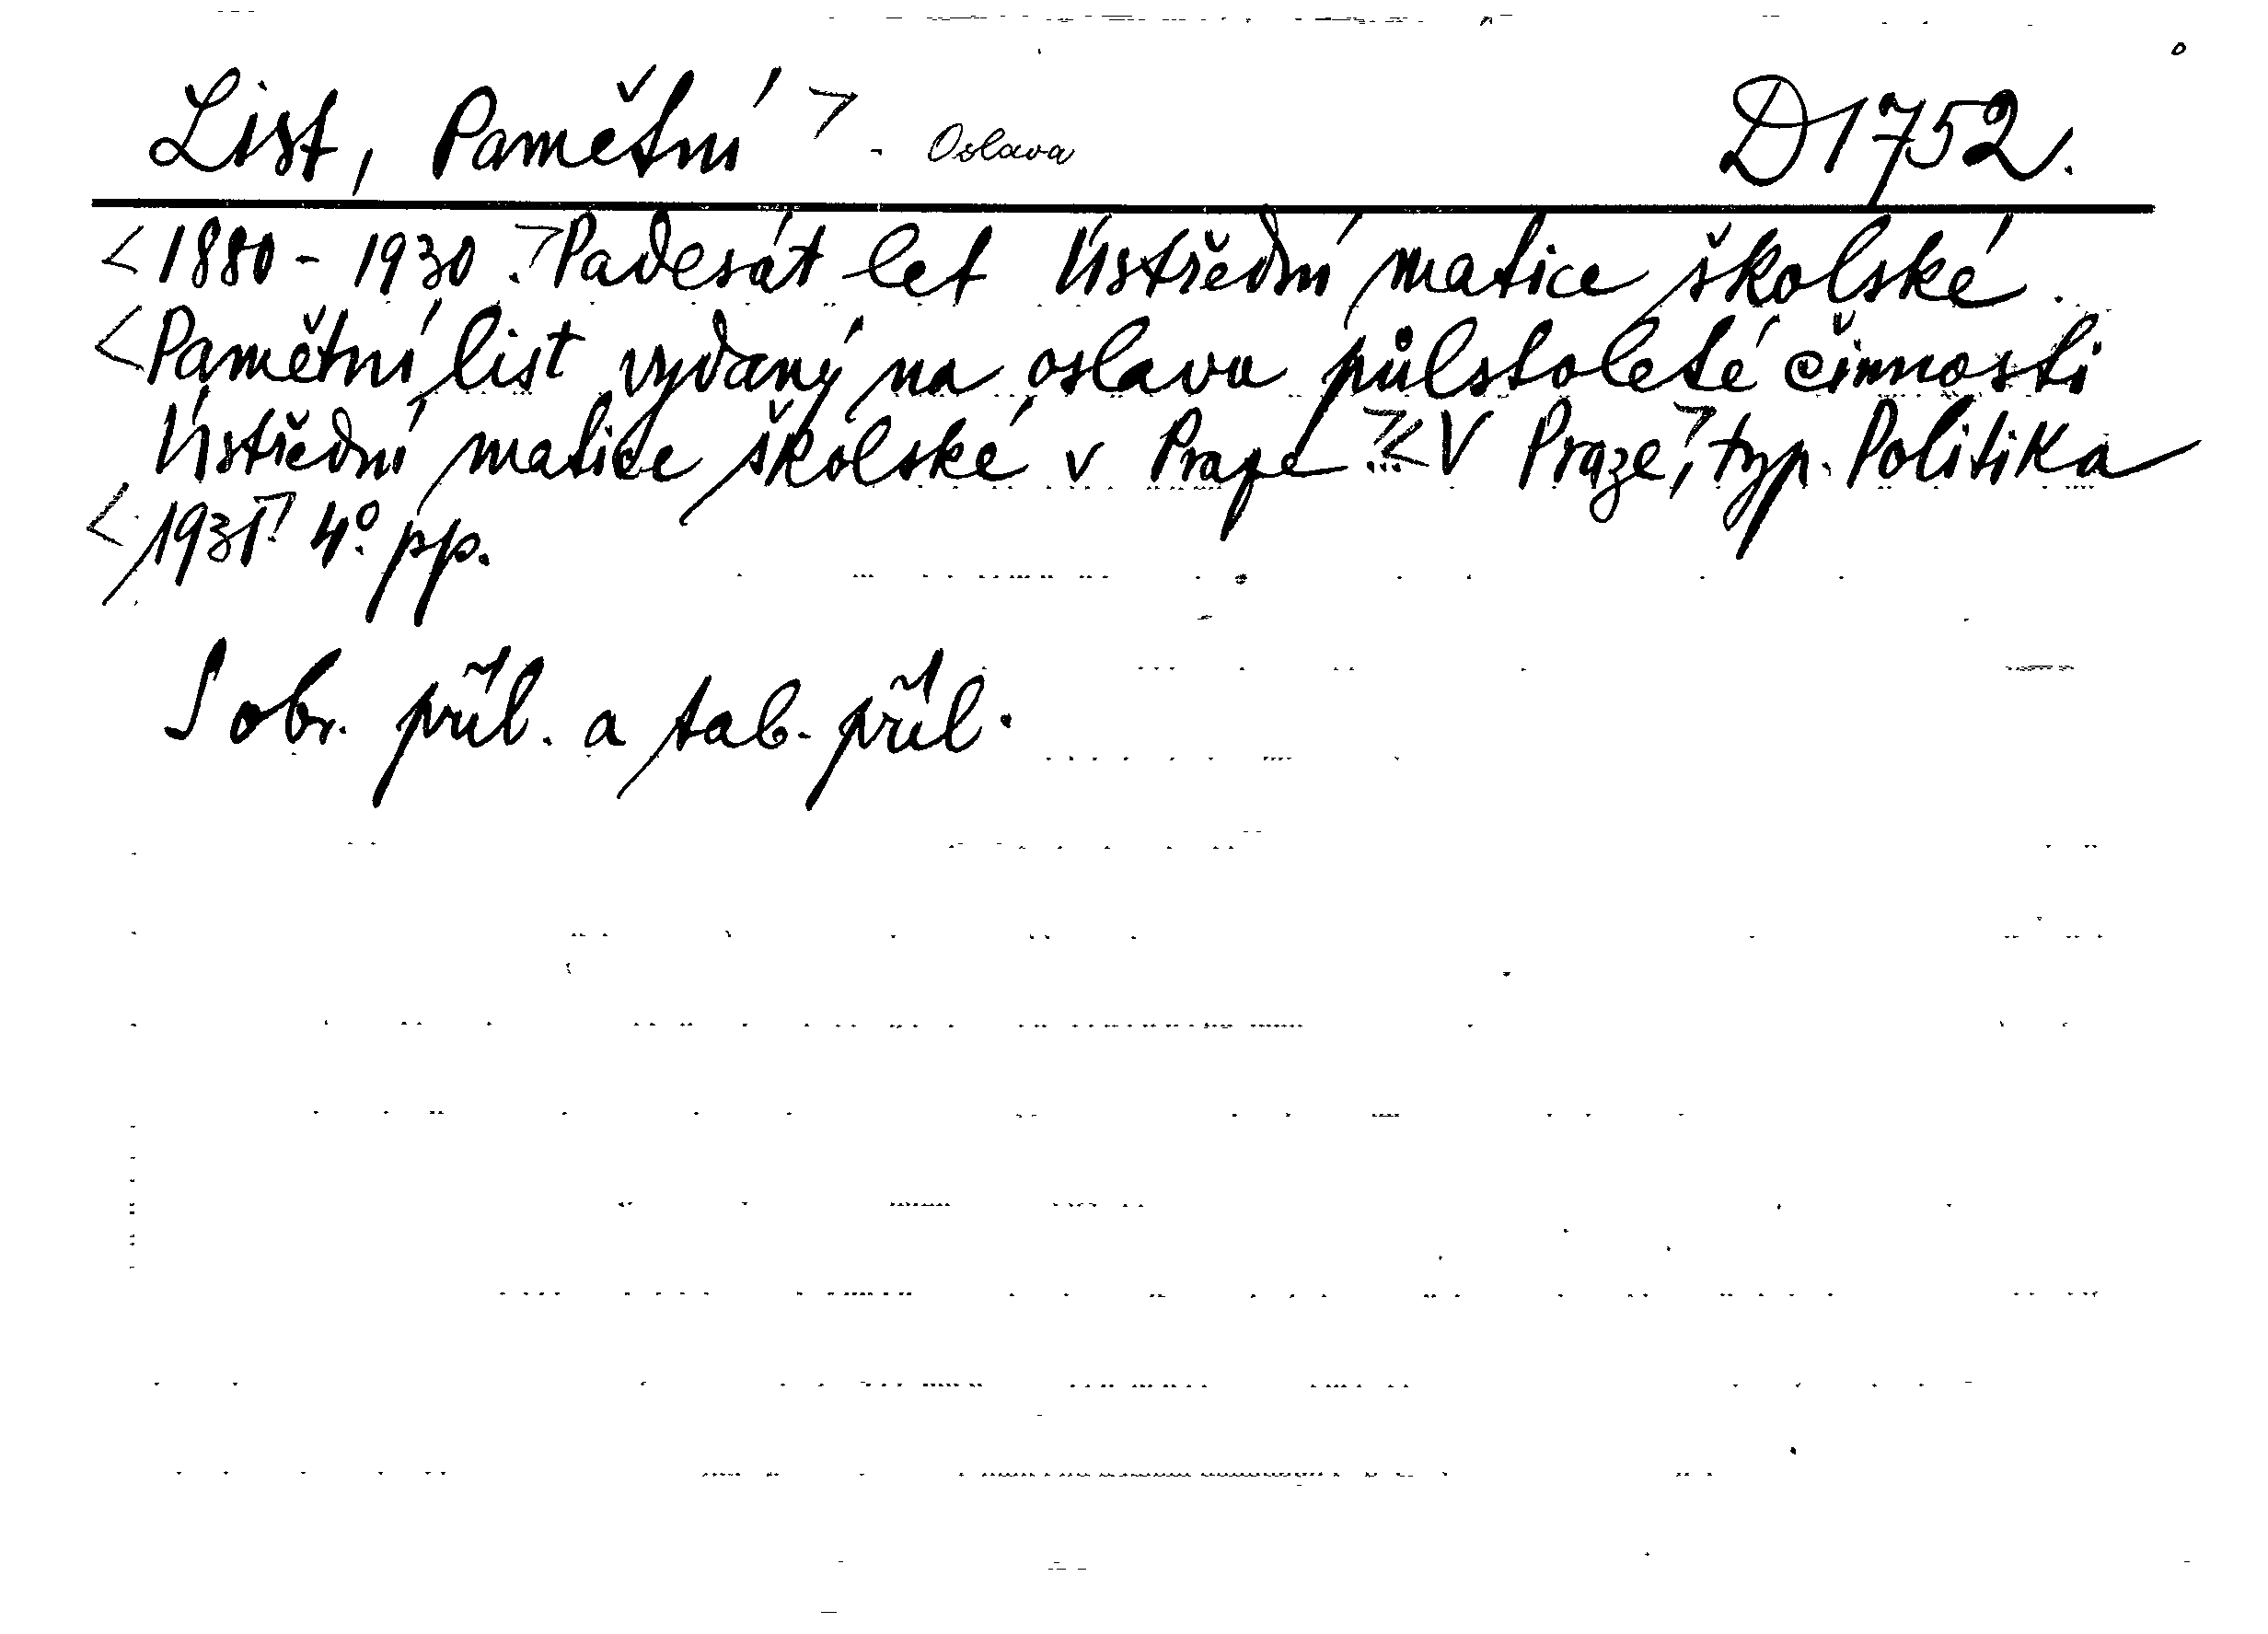 List, Pamětní > - Oslava D1752.
<1880 - 1930.> Padesát let Ústřední matice školské.
<Pamětní list vydaný na oslavu půlstoleté činnosti
Ústřední matice školské v Praze.> <V Praze,> typ. Politika
<1931.> 4º. pp.
S obr. příl. a tab. příl.